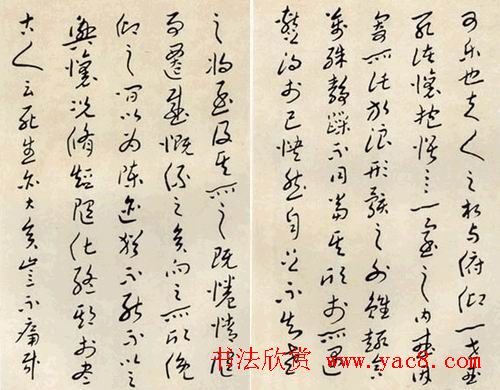 可樂也夫人之相與俯仰一世或
取諸懷抱悟言一室之內或因
寄所託放浪形骸之外雖趣舍
萬殊靜躁不同當其欣於所遇
暫得於己快然自足不知老
之將至及其所之既倦情隨
事遷感慨係之矣向之所欣俛
仰之間以為陳迹猶不能不以之
興懷況脩短隨化終期於盡
古人云死生亦大矣豈不痛哉
书法欣赏 www.yac8.com